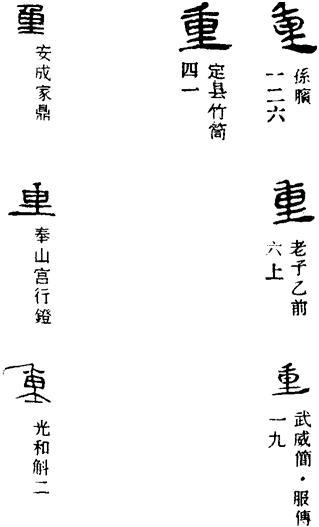 重
孫臏
一二六
重
老子乙前
六上
重
武威簡·服傳
一九
重
定县竹簡
四一
重
安成家鼎
重
奉山宫行鐙
重
光和斛二